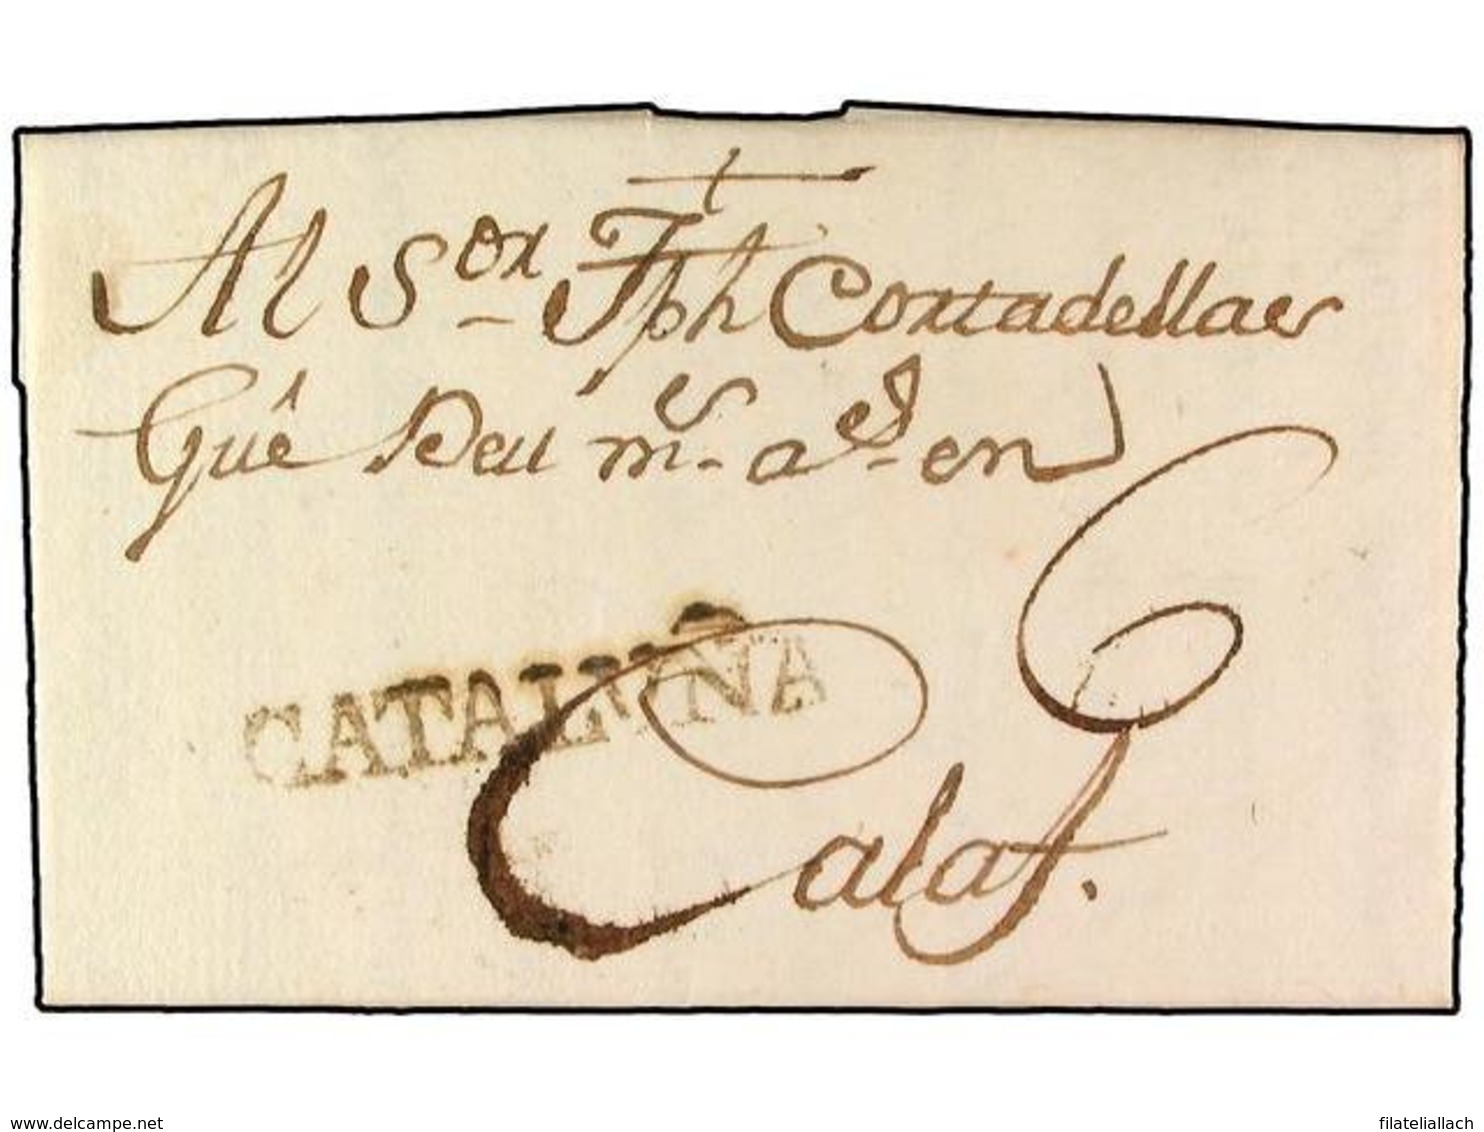 Al Sor Jph Cortadellas
Guê Deu ms. as. en
CATALUÑA
Calaf.
www.delcampe.net
filateliallach